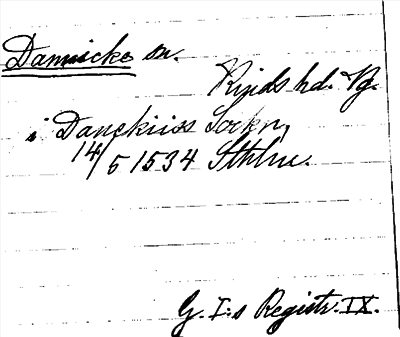 Dannicke sn.
Kinds hd. Vg.
i Danckiiss Sockn,
14/5 1534 Sthlm.
G. I:s Registr. IX.